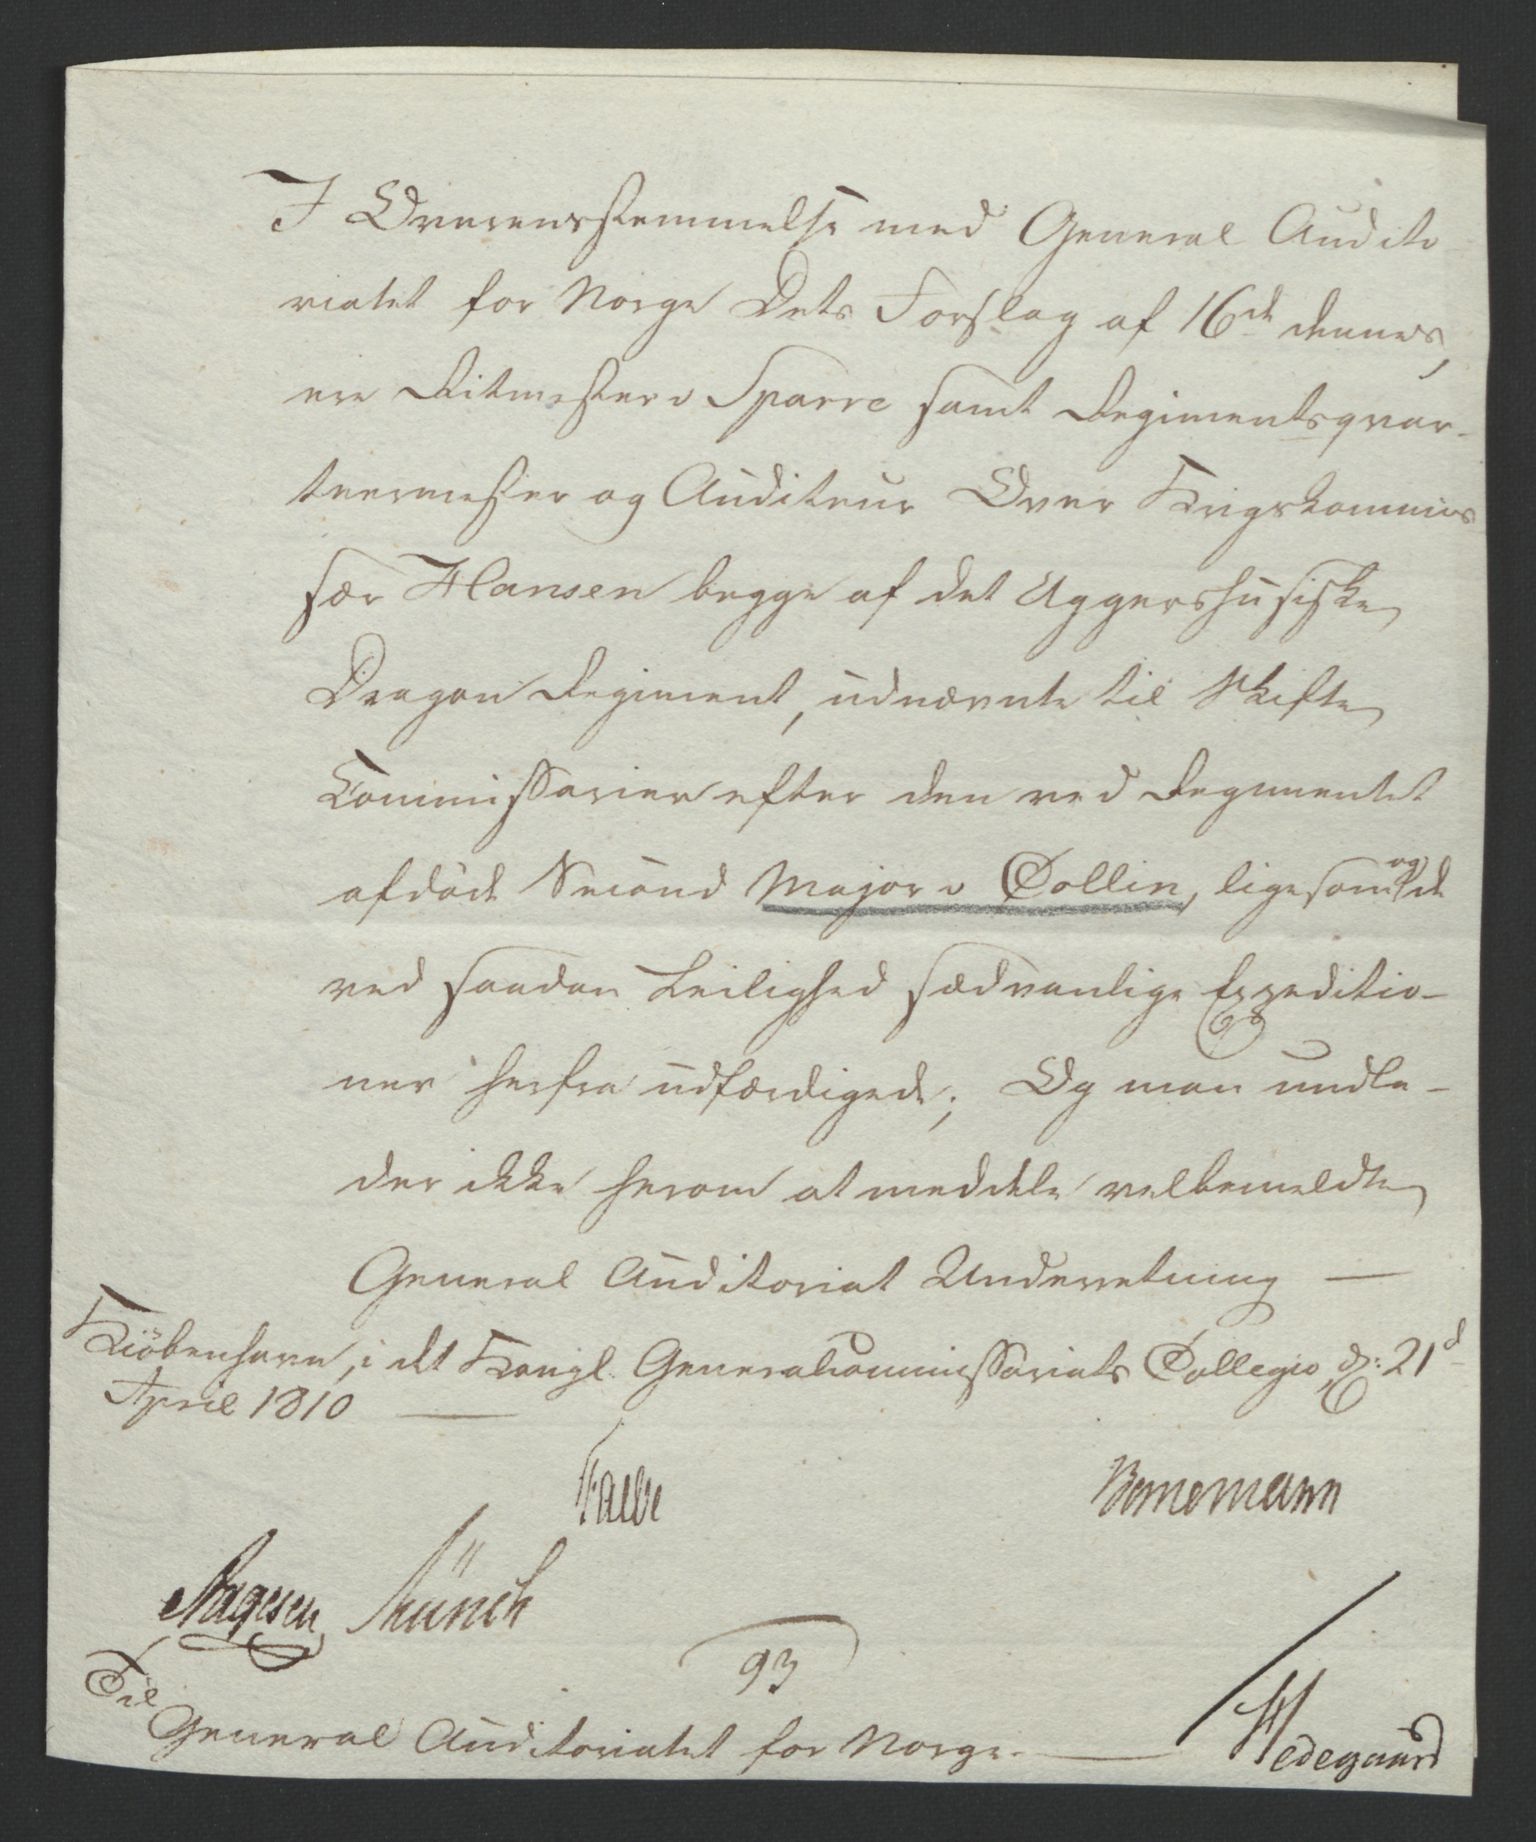 I Overensstemmelse med General Audito
riatet for Norge Dets Forslag af 16de dennes,
ere Ritmester v Sparre samt Regimentsqvar-
teermester og Auditeur Over Krigskommis
sær Hansen begge af det Aggershusiske
Dragon Regiment, udnævnte til Skifte
Commissarier efter den ved Regimentet
afdöde Second Major v Collin, ligesom og de
ved saadan Leilighed sædvanlige Expeditio-
ner herfra udfærdigede; Og man undla-
der ikke herom at meddele velbemeldte
General Auditoriat Underretning —
Kiöbenhavn, i det Kongl. Generalcommissariats Collegio, d: 21d
April 1810 —
Falbe
Bornemann
Aagesen Münch
93
Til
General Auditoriatet for Norge. —
Hedegaard